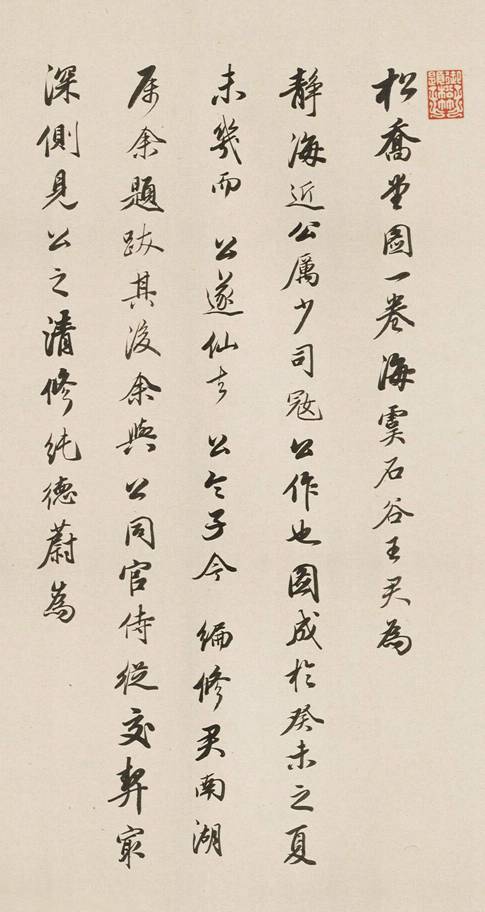 松喬堂圖一卷海虞石谷王君為
靜海近公厲少司寇公作也圖成於癸未之夏
未幾而公遂仙去公令子今編修君南湖
属余題跋其後余與公同官侍從交契寂
深側見公之清修純德蔚為